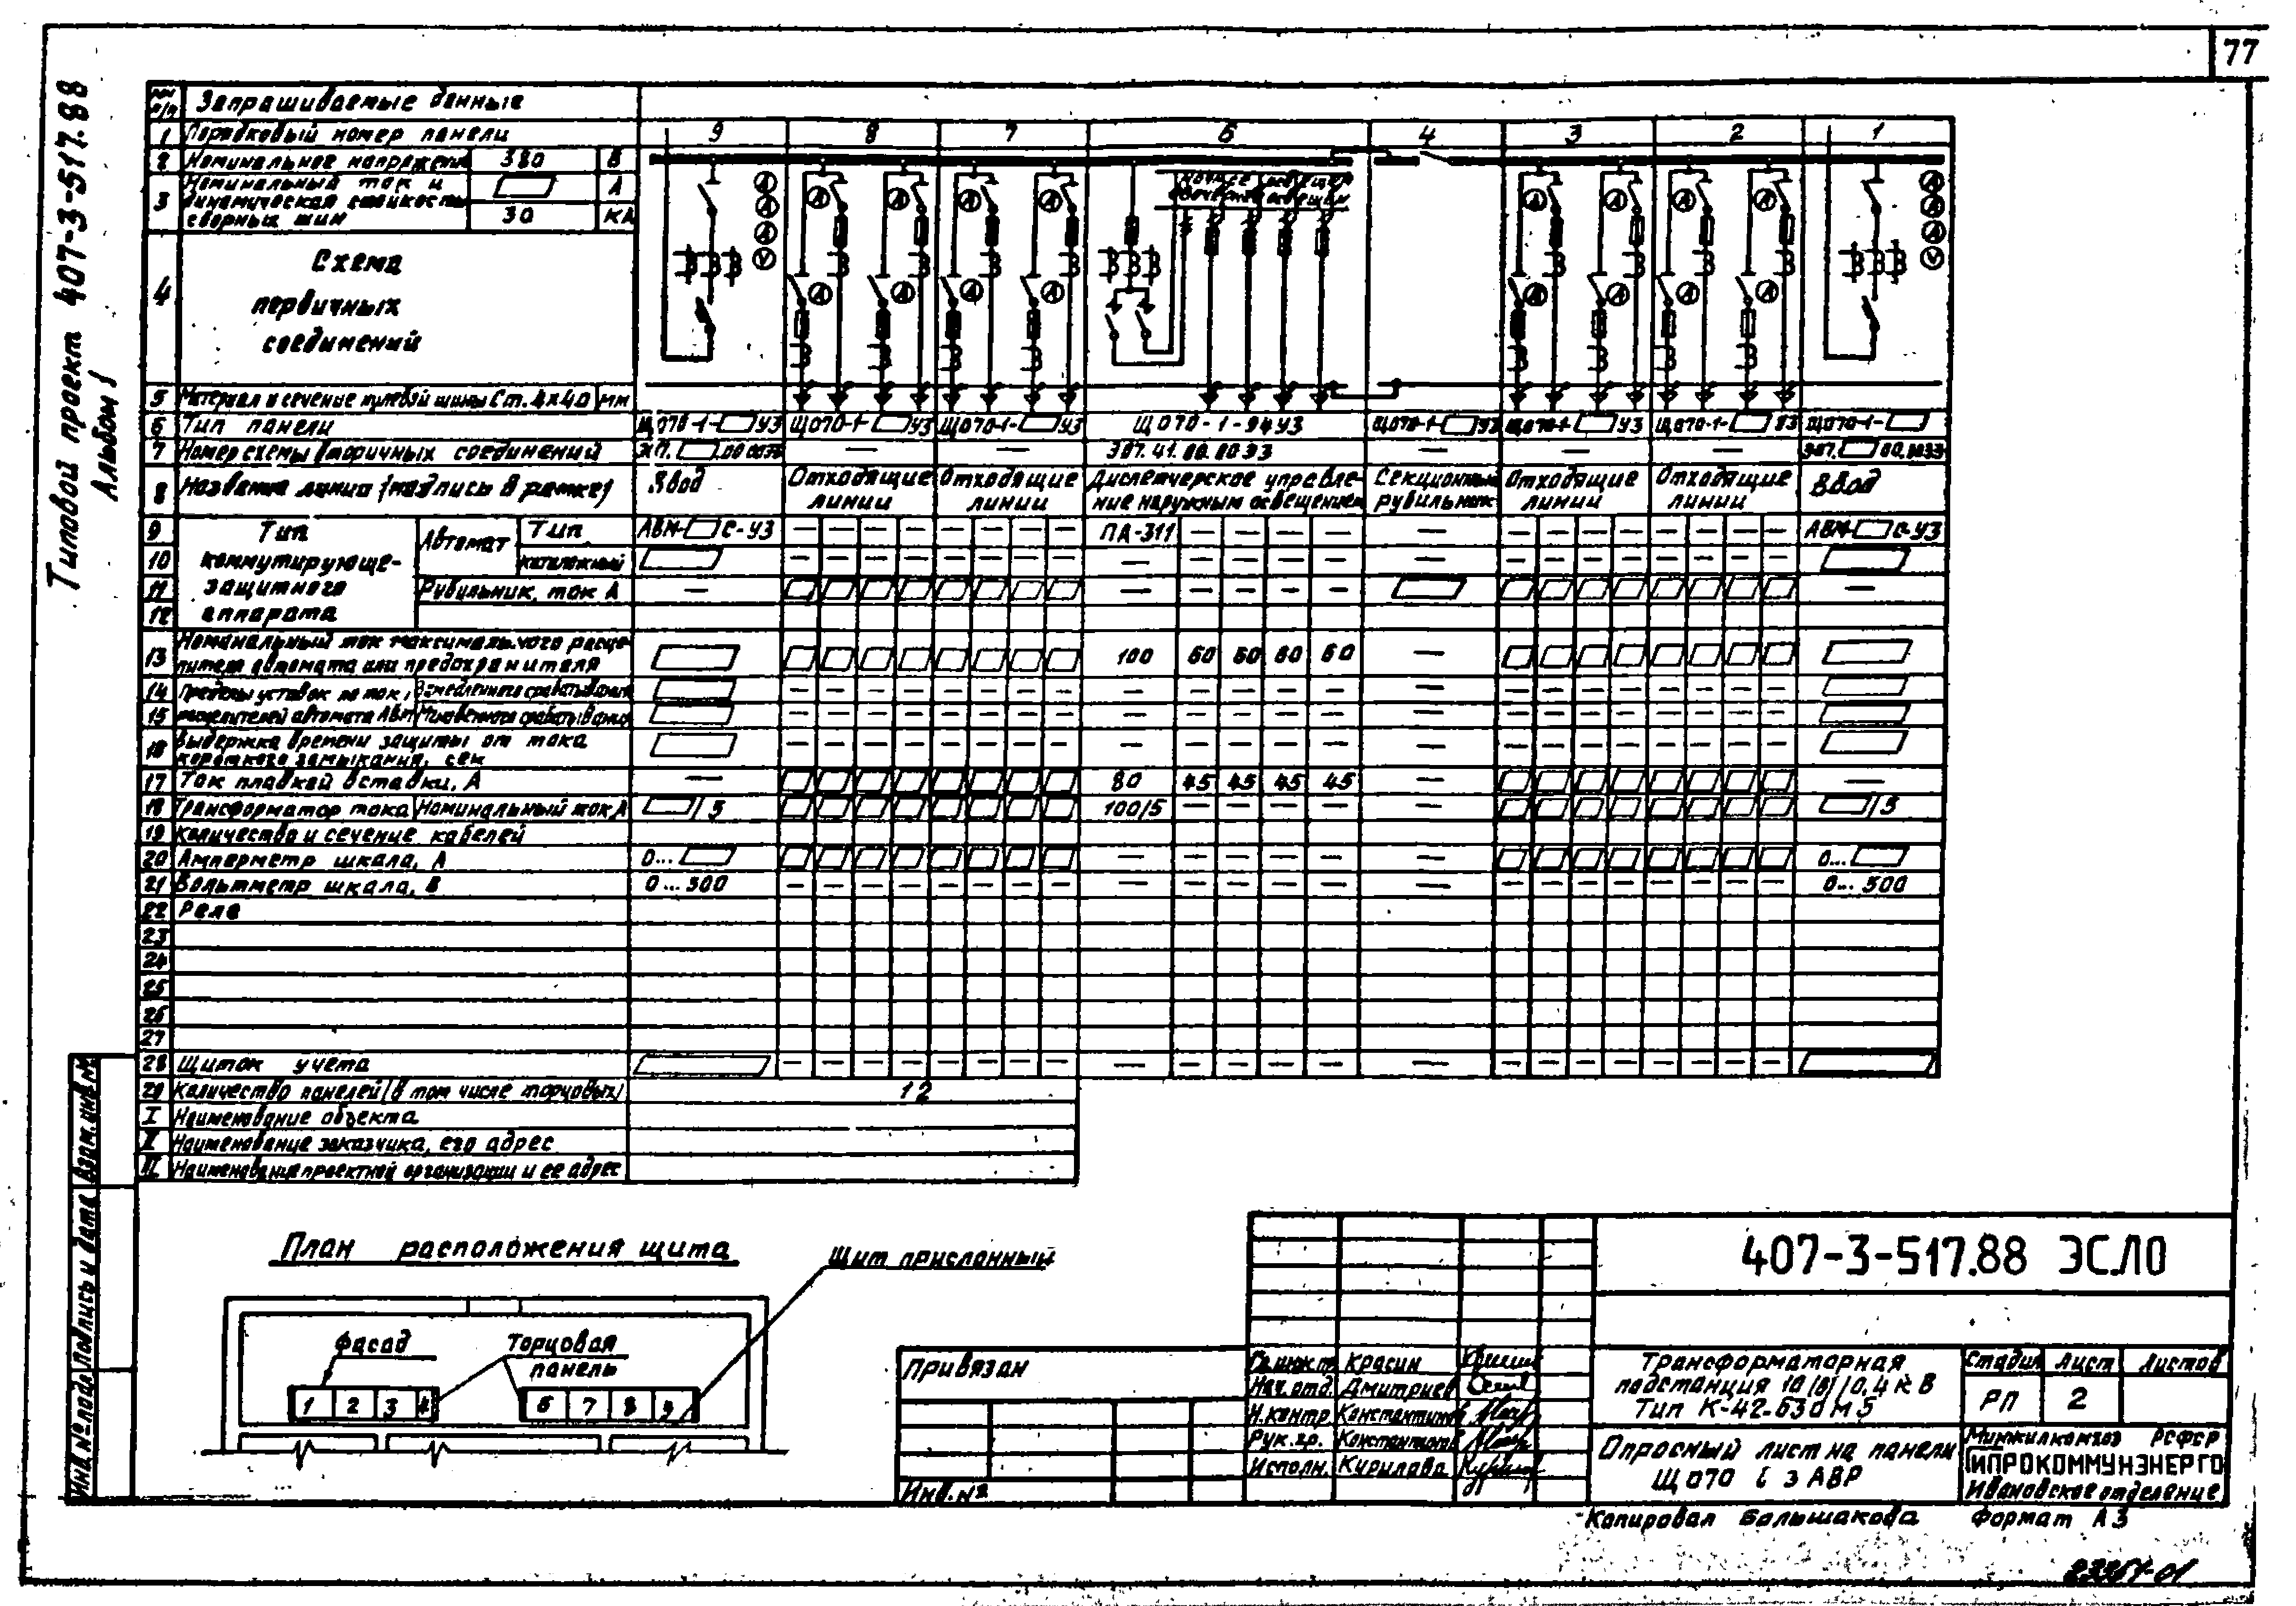 77
Типовой проект 407-3-517.88
Альбом 1
NN п/п Запрашиваемые данные
1 Порядковый номер панели 9 8 7 6 4 3 2 1
2 Номинальное напряжение 380 В
3 Номинальный ток и А
динамическая стойкость
сборных шин 30 кА
4 Схема
первичных
соединений
5 Материал и сечение нулевой шины Ст. 4х40 мм
6 Тип панели ЩО70-1- У3 ЩО70-1- У3 ЩО70-1- У3 ЩО70-1-94У3 ЩО70-1- У3 ЩО70-1- У3 ЩО70-1- У3 ЩО70-1-
7 Номер схемы вторичных соединений — — — — —
8 Название линии (надпись в рамке) Ввод Отходящие линии Отходящие линии Диспетчерское управление наружным освещением Секционный рубильник Отходящие линии Отходящие линии Ввод
9 Тип Автомат Тип АВМ- С-У3 — — — — — — — — ПА-311 — — — — — — — — — — — — — АВМ- С-У3
10 коммутирующе- каталожный — — — — — — — — — — — — — — — — — — — — — —
11 защитного Рубильник, ток А — — — — — — —
12 аппарата
13 Номинальный ток максимального расце-
пителя автомата или предохранителя 100 60 60 60 60 —
14 Пределы уставок по току Замедленного срабатывания — — — — — — — — — — — — — — — — — — — — — —
15 расцепителей автомата АВМ Мгновенного срабатывания — — — — — — — — — — — — — — — — — — — — — —
16 Выдержка времени защиты от тока
короткого замыкания, сек — — — — — — — — — — — — — — — — — — — — — —
17 Ток плавкой вставки, А — 80 45 45 45 45 — —
18 Трансформатор тока Номинальный ток А /5 100/5 — — — — — /5
19 Количество и сечение кабелей
20 Амперметр шкала, А 0... — — — — — — 0...
21 Вольтметр шкала, В 0...500 — — — — — — — — — — — — — — — — — — — — — — 0...500
22 Реле
23
24
25
26
27
28 Щиток учета — — — — — — — — — — — — — — — — — — — — — —
29 Количество панелей (в том числе торцовых) 12
I Наименование объекта
II Наименование заказчика, его адрес
III Наименование проектной организации и ее адрес
План расположения щита
Щит прислонный
Фасад
Торцовая
панель
1 2 3 4 6 7 8 9
Инв. № подл. Подпись и дата Взам. инв. №
Привязан
Инв. №
407-3-517.88 ЭС.ЛО
Гл. инж. п. Красин
Нач. отд. Дмитриев
Н. контр. Константинов
Рук. гр. Константинов
Исполн. Кирилова
Трансформаторная
подстанция 10(6)/0,4 кВ
Тип К-42-630 М5
Стадия Лист Листов
РП 2
Опросный лист на панели
ЩО70 с АВР
Минжилкомхоз РСФСР
ГИПРОКОММУНЭНЕРГО
Ивановское отделение
Копировал Большакова Формат А3